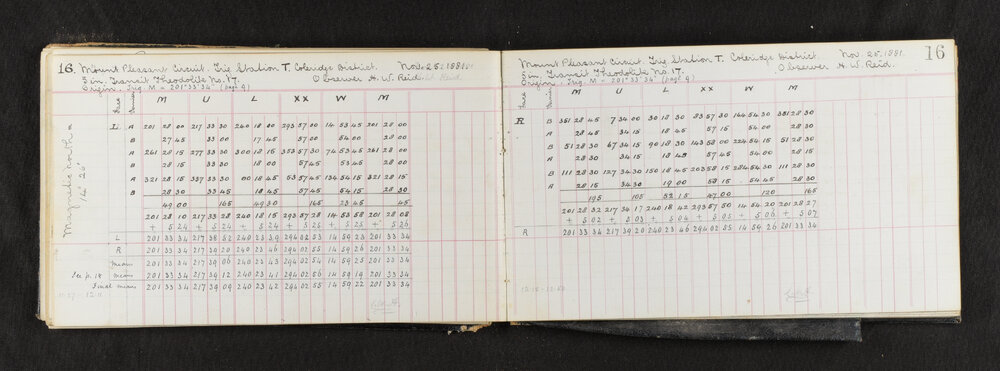 16. Mount Pleasant Circuit. Trig Station T. Coleridge District. Nov. 25. 1881.
5 in. Transit Theodolite No. 17. Observer H. W. Reid.
Origin. Trig. M = 201° 33' 34" (page 9)
Face M U L XX W M
L A 201 28 00 217 33 30 240 18 00 293 57 00 14 53 45 201 28 00
B 27 45 33 00 17 45 57 00 54 00 28 00
A 261 28 15 277 33 30 300 18 15 353 57 30 74 53 45 261 28 00
B 28 15 33 30 18 00 57 45 53 45 28 00
A 321 28 15 337 33 30 00 18 45 53 57 45 134 54 15 321 28 15
B 28 30 33 45 18 45 57 45 54 15 28 30
49 00 165 49 30 165 23 45 45
201 28 10 217 33 28 240 18 15 293 57 28 14 53 58 201 28 08
+ 5 24 + 5 24 + 5 24 + 5 25 + 5 25 + 5 26
L 201 33 34 217 38 52 240 23 39 294 02 53 14 59 23 201 33 34
R 201 33 34 217 39 20 240 23 46 294 02 55 14 59 26 201 33 34
means 201 33 34 217 39 06 240 23 43 294 02 54 14 59 25 201 33 34
See p. 18 means 201 33 34 217 39 12 240 23 41 294 02 56 14 59 19 201 33 34
Final means 201 33 34 217 39 09 240 23 42 294 02 55 14 59 22 201 33 34
Magnetic north = 14° 21'
Mount Pleasant Circuit. Trig Station T. Coleridge District. Nov. 25. 1881. 16
5 in. Transit Theodolite No. 17. Observer H. W. Reid.
Origin. Trig. M = 201° 33' 34" (page 9)
Face M U L XX W M
R B 381 28 45 7 34 00 30 18 30 83 57 30 164 54 30 381 28 30
A 28 45 34 15 18 45 57 15 54 00 28 30
B 51 28 30 67 34 15 90 18 30 143 58 00 224 54 15 51 28 30
A 28 30 34 15 18 45 57 45 54 00 28 30
B 111 28 30 127 34 30 150 18 45 203 58 15 284 54 30 111 28 30
A 28 15 34 30 19 00 58 15 54 45 28 30
195 105 52 15 47 00 120 165
201 28 32 217 34 17 240 18 42 293 57 50 14 54 20 201 28 27
+ 5 02 + 5 03 + 5 04 + 5 05 + 5 06 + 5 07
R 201 33 34 217 39 20 240 23 46 294 02 55 14 59 26 201 33 34